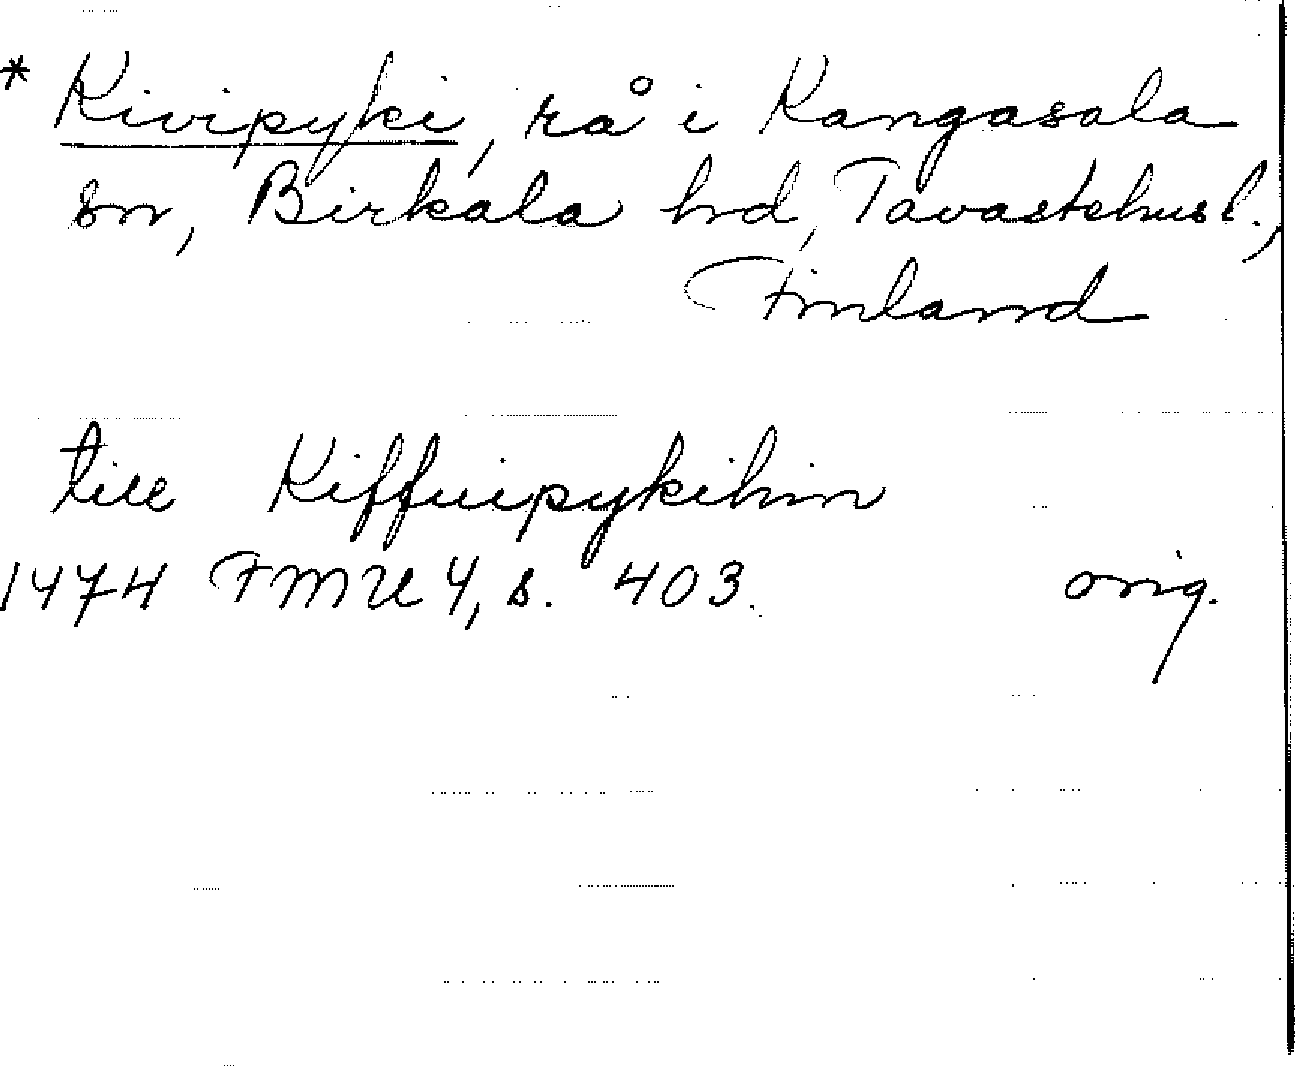 * Kivipyki, rå i Kangasala
sn, Birkala hd, Tavastehusl.,
Finland
till Kiffuipykihin
1474 FMU 4, s. 403. orig.